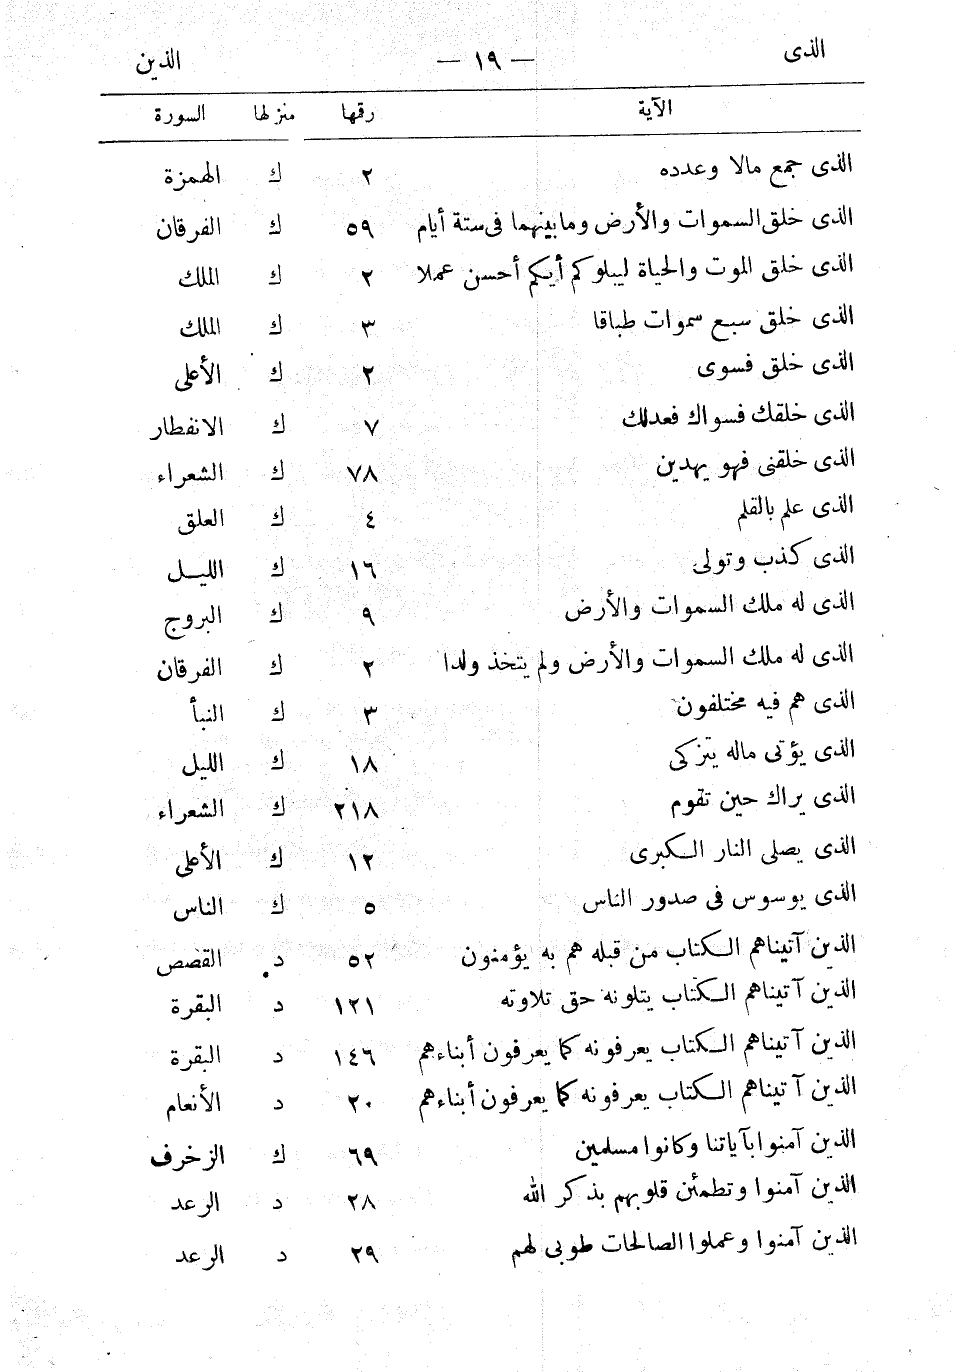 الذى — ١٩ — الذين
الآية رقمها منزلها السورة
الذى جمع مالا وعدده ٢ ك الهمزة
الذى خلق السموات والأرض وما بينهما فى ستة أيام ٥٩ ك الفرقان
الذى خلق الموت والحياة ليبلوكم أيكم أحسن عملا ٢ ك الملك
الذى خلق سبع سموات طباقا ٣ ك الملك
الذى خلق فسوى ٢ ك الأعلى
الذى خلقك فسواك فعدلك ٧ ك الانفطار
الذى خلقنى فهو يهدين ٧٨ ك الشعراء
الذى علم بالقلم ٤ ك العلق
الذى كذب وتولى ١٦ ك الليل
الذى له ملك السموات والأرض ٩ ك البروج
الذى له ملك السموات والأرض ولم يتخذ ولدا ٢ ك الفرقان
الذى هم فيه مختلفون ٣ ك النبأ
الذى يؤتى ماله يتزكى ١٨ ك الليل
الذى يراك حين تقوم ٢١٨ ك الشعراء
الذى يصلى النار الكبرى ١٢ ك الأعلى
الذى يوسوس فى صدور الناس ٥ ك الناس
الذين آتيناهم الكتاب من قبله هم به يؤمنون ٥٢ د القصص
الذين آتيناهم الكتاب يتلونه حق تلاوته ١٢١ د البقرة
الذين آتيناهم الكتاب يعرفونه كما يعرفون أبناءهم ١٤٦ د البقرة
الذين آتيناهم الكتاب يعرفونه كما يعرفون أبناءهم ٢٠ د الأنعام
الذين آمنوا بآياتنا وكانوا مسلمين ٦٩ ك الزخرف
الذين آمنوا وتطمئن قلوبهم بذكر الله ٢٨ د الرعد
الذين آمنوا وعملوا الصالحات طوبى لهم ٢٩ د الرعد